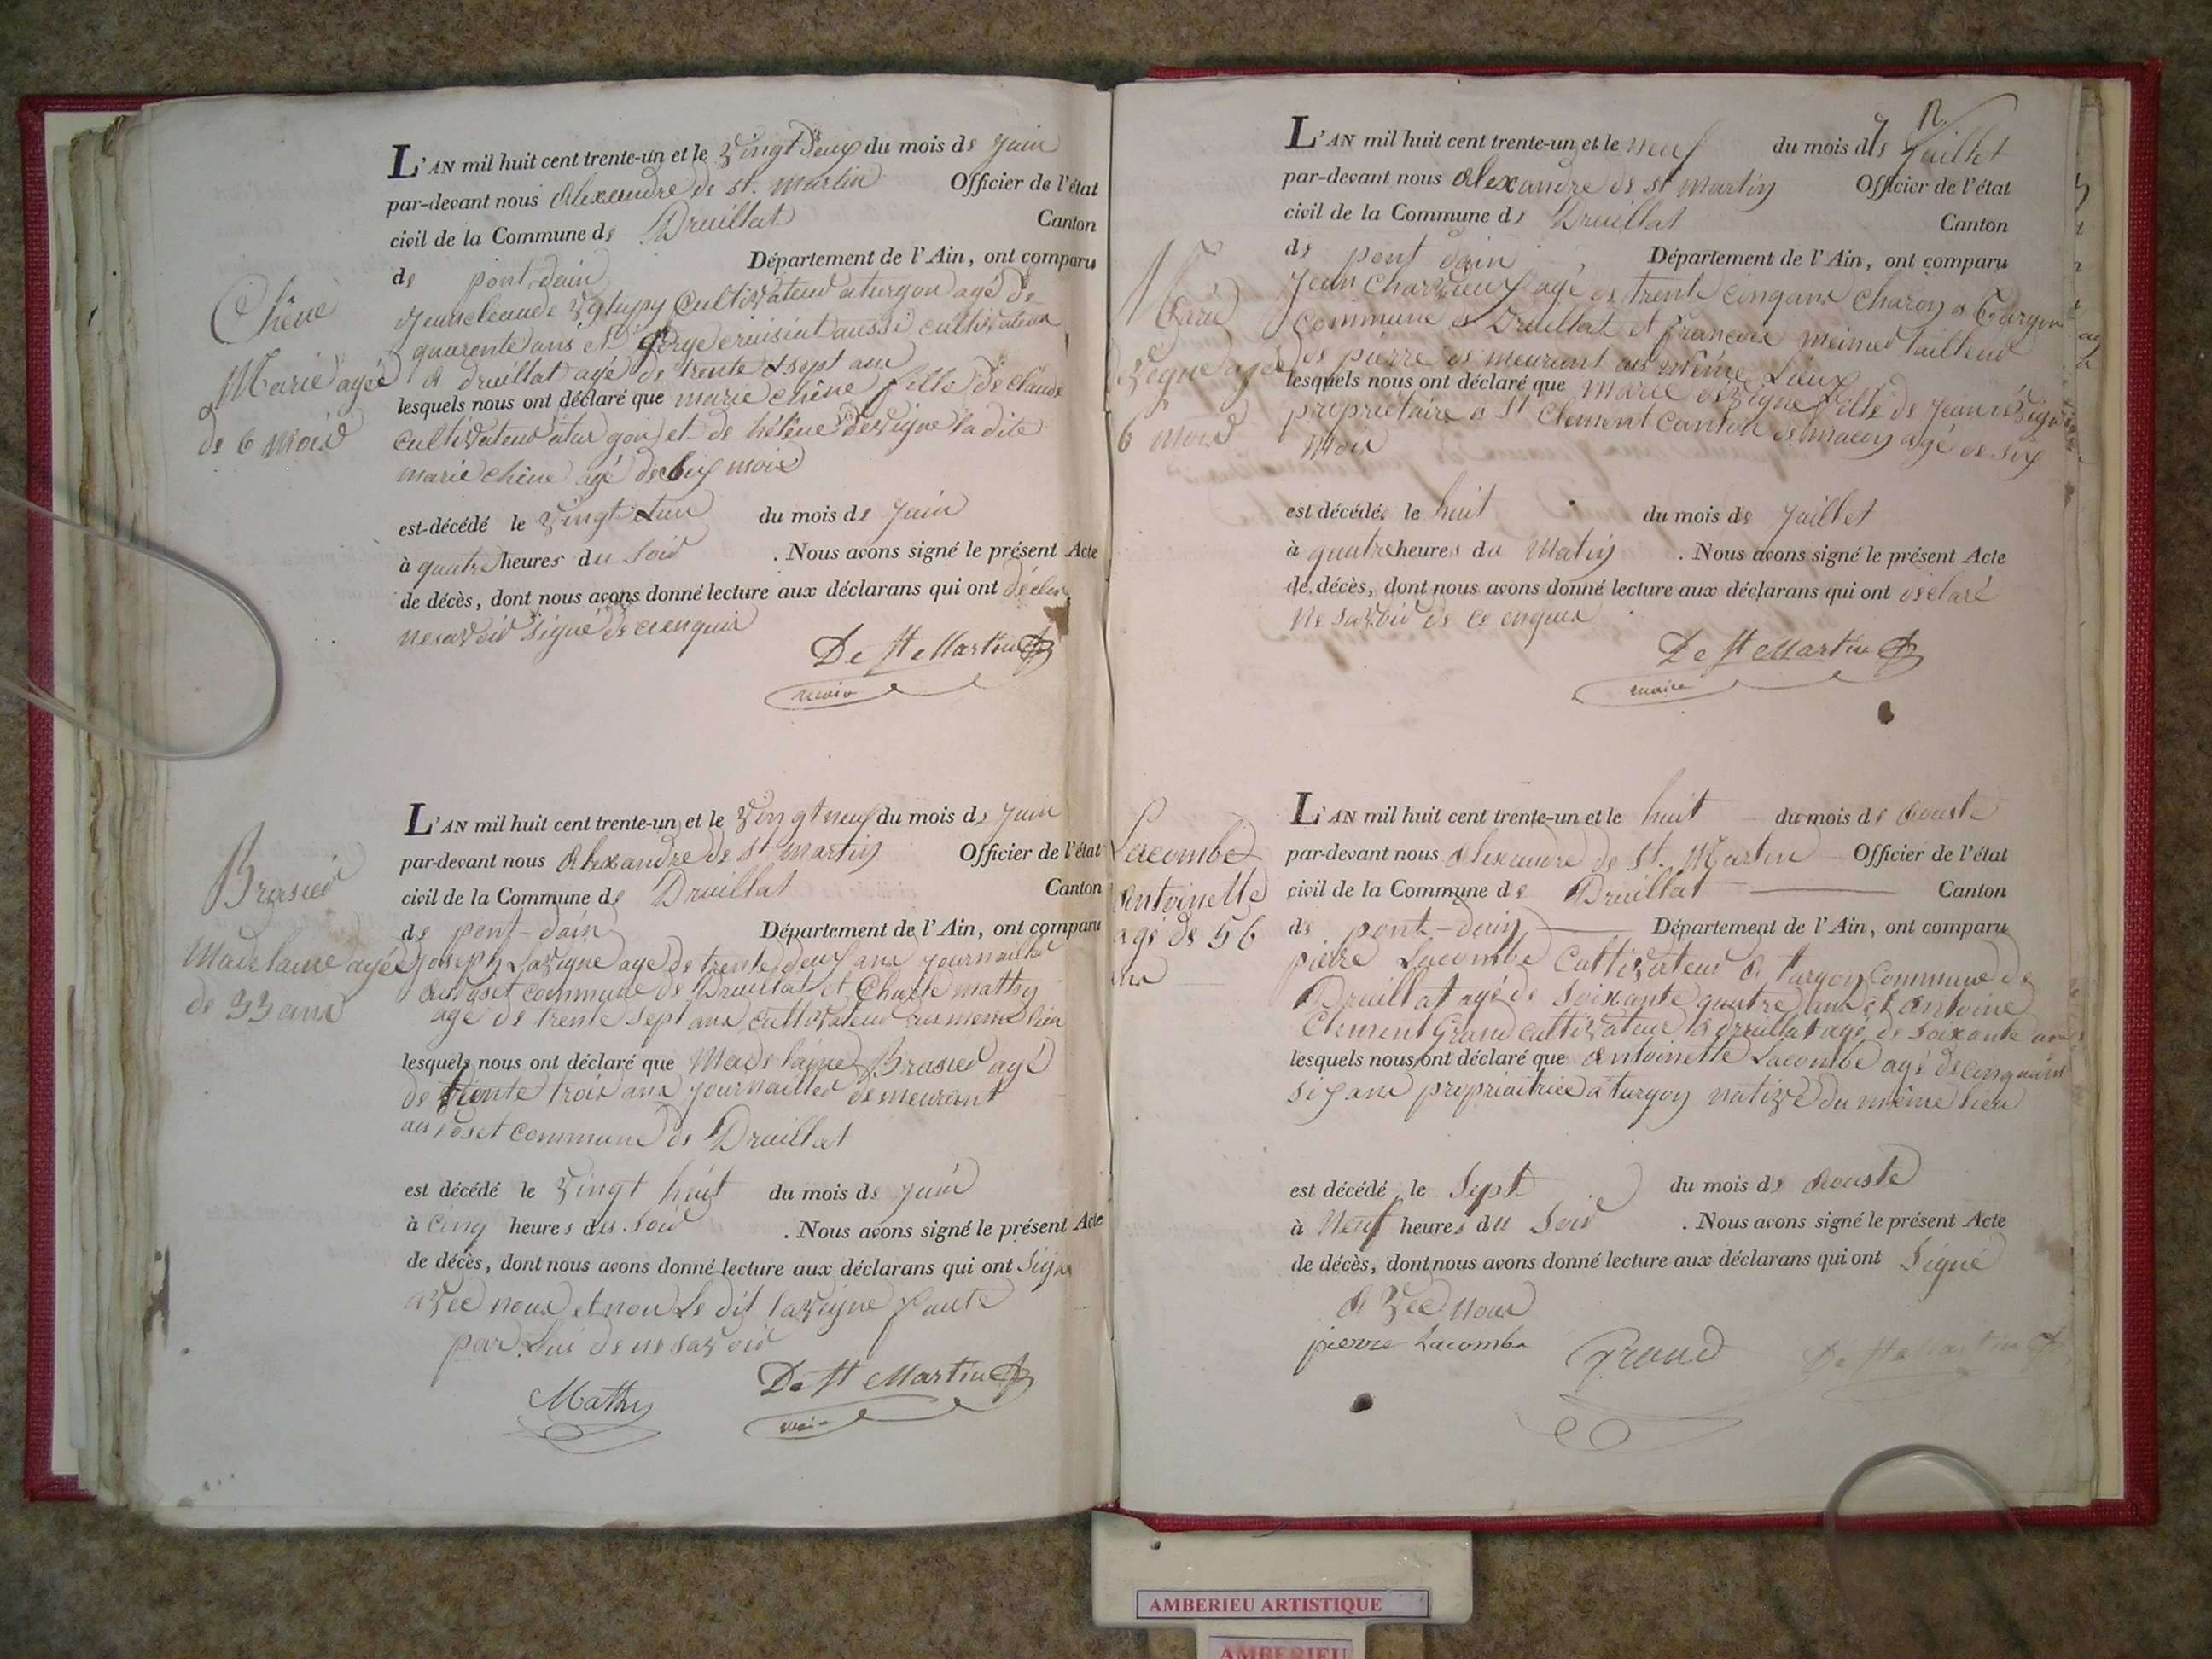 L'AN mil huit cent trente-un et le vingt deux du mois de juin
par-devant nous Alexandre de st. martin Officier de l'état
civil de la Commune de Druillat Canton
de pont-dain Département de l'Ain, ont comparu
jeanclaude cultivateur a turgon agé de
quarente ans et aussi cultivateur
a druillat agé de trente et sept ans
lesquels nous ont déclaré que marie chêne fille de claude
cultivateur atur gon et de hélène devigne la dite
marie chêne agé de six mois
est décédé le vingt et un du mois de juin
à quatre heures du soir . Nous avons signé le présent Acte
de décès, dont nous avons donné lecture aux déclarans qui ont déclar
ne savoir signé de ce enquir
De St Martin
maire
Chêne
Marie agée
de 6 mois
L'AN mil huit cent trente-un et le vingt neuf du mois de juin
par-devant nous Alexandre de st martin Officier de l'état
civil de la Commune de Druillat Canton
de pont-dain Département de l'Ain, ont comparu
joseph Lavigne agé de trente deux ans journailler
commune de Druillat et Charle mathy
agé de trente sept ans cultivateur au meme lieu
lesquels nous ont déclaré que Madelaine Brasier agé
de trente trois ans journailler demeurant
au commune de Druillat
est décédé le vingt huit du mois de juin
à cinq heures du soir . Nous avons signé le présent Acte
de décès, dont nous avons donné lecture aux déclarans qui ont signé
avec nous et non le dit lavigne faute
par lui de ne savoir
Mathy De St Martin
maire
Brasier
Madelaine agée
de 33 ans
12
L'AN mil huit cent trente-un et le neuf du mois de juillet
par-devant nous Alexandre de st martin Officier de l'état
civil de la Commune de Druillat Canton
de pont dain Département de l'Ain, ont comparu
jean Charvieux agé de trente cinq ans charon a Turgon
commune de Druillat et francois meinier tailleur
de pierre demeurant au même Lieux
lesquels nous ont déclaré que marie devigne fille de jean devigne
propriétaire a St Clement canton de macon agé de six
mois
est décédé le huit du mois de juillet
à quatre heures du matin . Nous avons signé le présent Acte
de décès, dont nous avons donné lecture aux déclarans qui ont déclaré
ne savoir de ce enquis
De St Martin
maire
Marie
devigne agée
6 mois
L'AN mil huit cent trente-un et le huit du mois de aouste
par-devant nous Alexandre de st. Martin Officier de l'état
civil de la Commune de Druillat Canton
de pont-dain Département de l'Ain, ont comparu
pierre Lacombe cultivateur a turgon commune de
Druillat agé de soixante quatre ans et Antoine
Clement Grand cultivateur a druillat agé de soixante ans
lesquels nous ont déclaré que Antoinette Lacombe agé de cinquante
six ans propriaitrice a turgon native du même lieu
est décédé le sept du mois de aouste
à neuf heures du soir . Nous avons signé le présent Acte
de décès, dont nous avons donné lecture aux déclarans qui ont signé
avec nous
pierre Lacombe Grand De St Martin
Lacombe
Antoinette
agé de 56
ans
AMBERIEU ARTISTIQUE
AMBERIEU